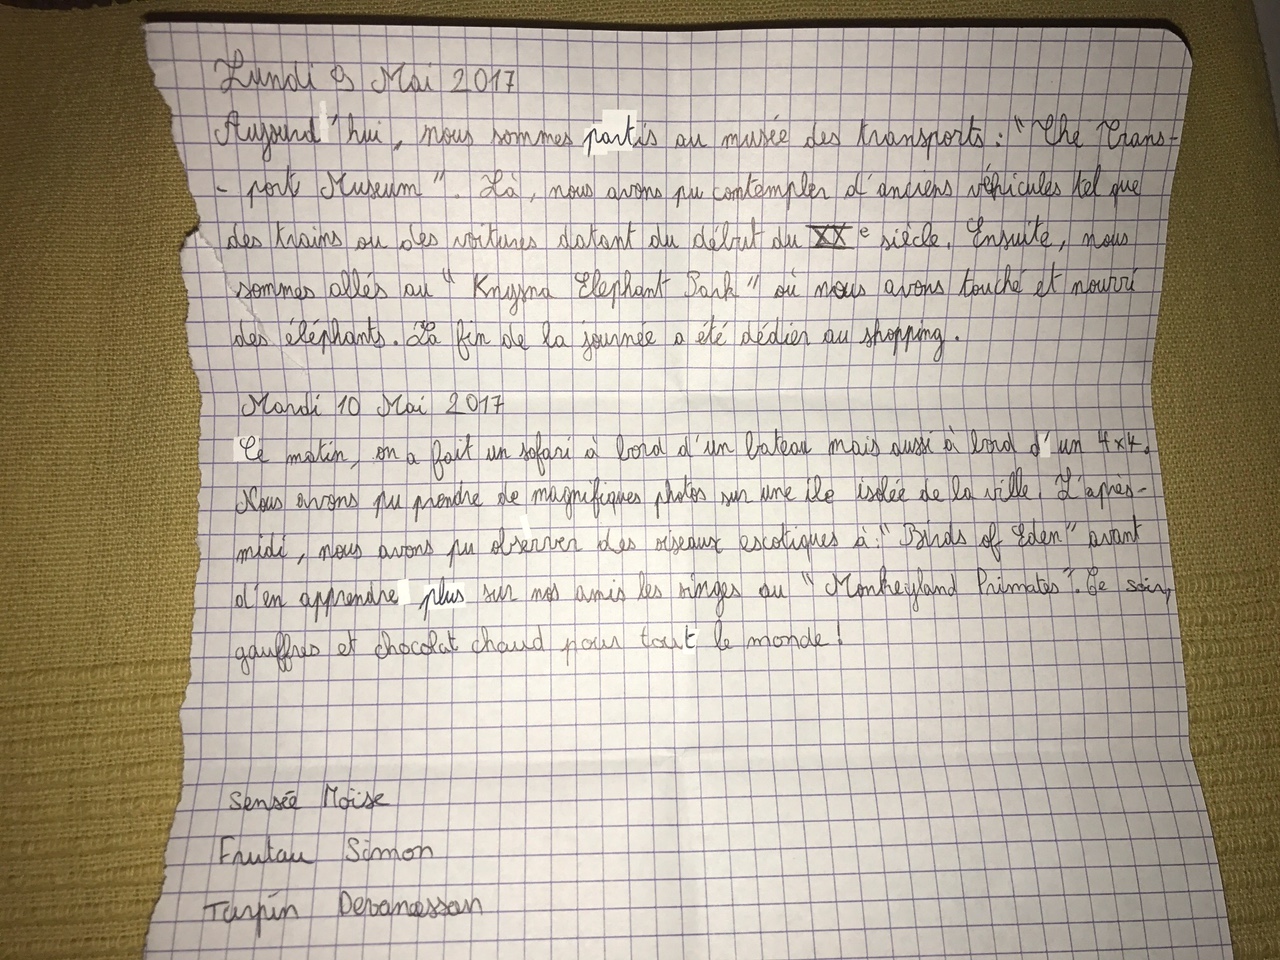 Lundi 9 Mai 2017
Aujourd'hui, nous sommes partis au musée des transports : "The Trans-
- port Museum". Là, nous avons pu contempler d'anciens véhicules tel que
des trains ou des voitures datant du début du XXe siècle. Ensuite, nous
sommes allés au "Knysna Elephant Park" où nous avons touché et nourri
des éléphants. La fin de la journée a été dédier au shopping.
Mardi 10 Mai 2017
Ce matin, on a fait un safari à bord d'un bateau mais aussi à bord d'un 4x4.
Nous avons pu prendre de magnifiques photos sur une île isolée de la ville. L'après-
midi, nous avons pu observer des oiseaux escotiques à : "Birds of Eden" avant
d'en apprendre plus sur nos amis les singes au "Monkeyland Primates". Ce soir,
gauffres et chocolat chaud pour tout le monde !
Sensée Moïse
Frutau Simon
Turpin Devanassan